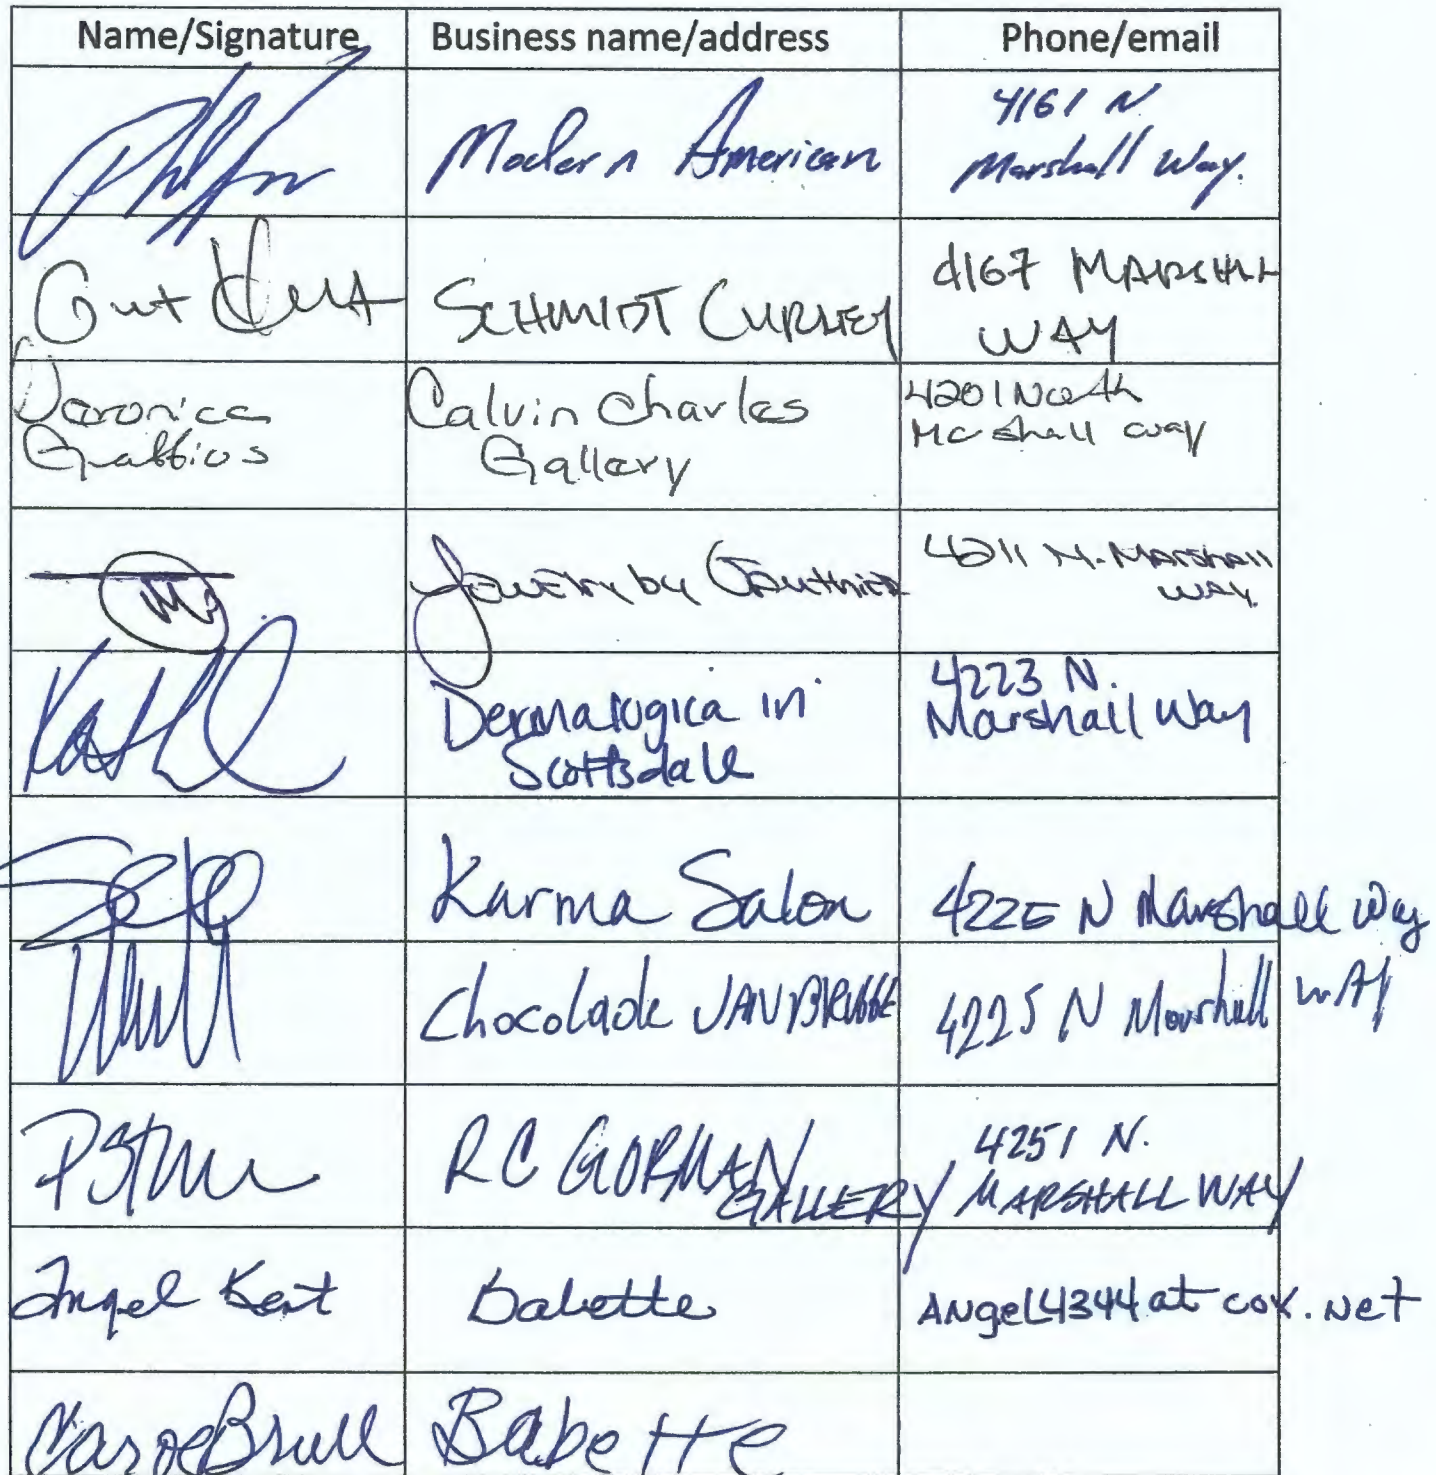 Name/Signature Business name/address Phone/email
Modern American 4161 N
Marshall Way.
SCHMIDT CURLEY 4167 MARSHALL
WAY
Veronica Calvin Charles 4201 North
Gallery Marshall way
Jewelry by Gauthier 4211 N. Marshall
WAY.
Dermalogica in 4223 N.
Scottsdale Marshall Way
Karma Salon 4225 N Marshall Way
Chocolade VANBRUGGE 4225 N Marshall WAY
RC GORMAN 4251 N.
GALLERY MARSHALL WAY
Angel Kent Babette Angel4344 at cox.net
Brull Babette